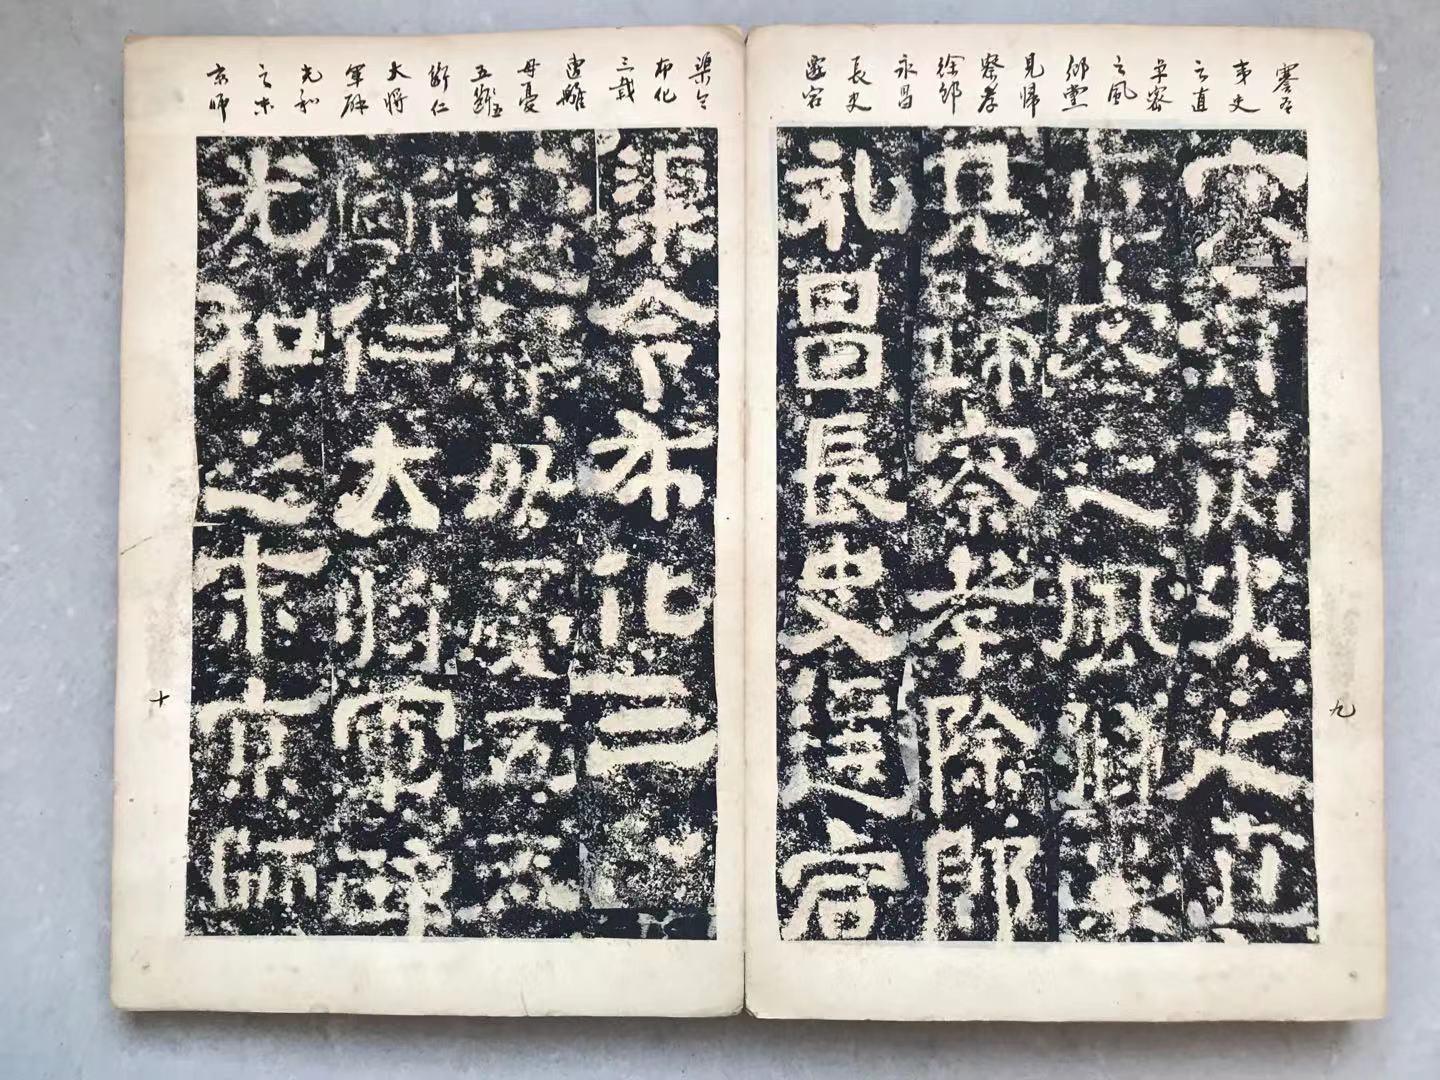 謇
夷史
之直
卓密
之風
鄉黨
見歸
察孝
除郎
永昌
長史
遷宕
史之直
密之風鄉黨
見歸察孝除郎
永昌長史遷宕
九
渠令
布化
三載
遭離
母憂
斷仁
大將
軍辟
光和
之末
京師
渠令布化三
母憂五五
斷仁大將軍辟
光和之末京師
十